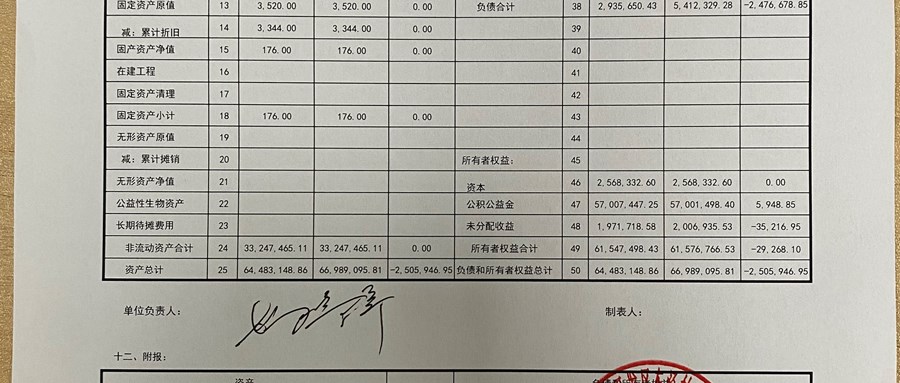 固定资产原值 13 3,520.00 3,520.00 0.00 负债合计 38 2,935,650.43 5,412,329.28 -2,476,678.85
减：累计折旧 14 3,344.00 3,344.00 0.00 39
固产资产净值 15 176.00 176.00 0.00 40
在建工程 16 41
固定资产清理 17 42
固定资产小计 18 176.00 176.00 0.00 43
无形资产原值 19 44
减：累计摊销 20 所有者权益： 45
无形资产净值 21 资本 46 2,568,332.60 2,568,332.60 0.00
公益性生物资产 22 公积公益金 47 57,007,447.25 57,001,498.40 5,948.85
长期待摊费用 23 未分配收益 48 1,971,718.58 2,006,935.53 -35,216.95
非流动资产合计 24 33,247,465.11 33,247,465.11 0.00 所有者权益合计 49 61,547,498.43 61,576,766.53 -29,268.10
资产总计 25 64,483,148.86 66,989,095.81 -2,505,946.95 负债和所有者权益总计 50 64,483,148.86 66,989,095.81 -2,505,946.95
单位负责人： 制表人：
十二、附报：
资产